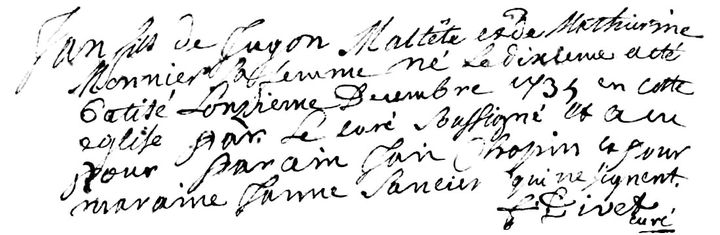 Jan fils de Jugon Maltête et de Mathurine
Monnier sa femme né le dixieme a été
batisé Lonzieme Decembre 1735 en cette
eglise par Le curé soussigné et a eu
pour parain Jan Chopin et pour
maraine Janne Sancier qui ne signent.
Livet
curé